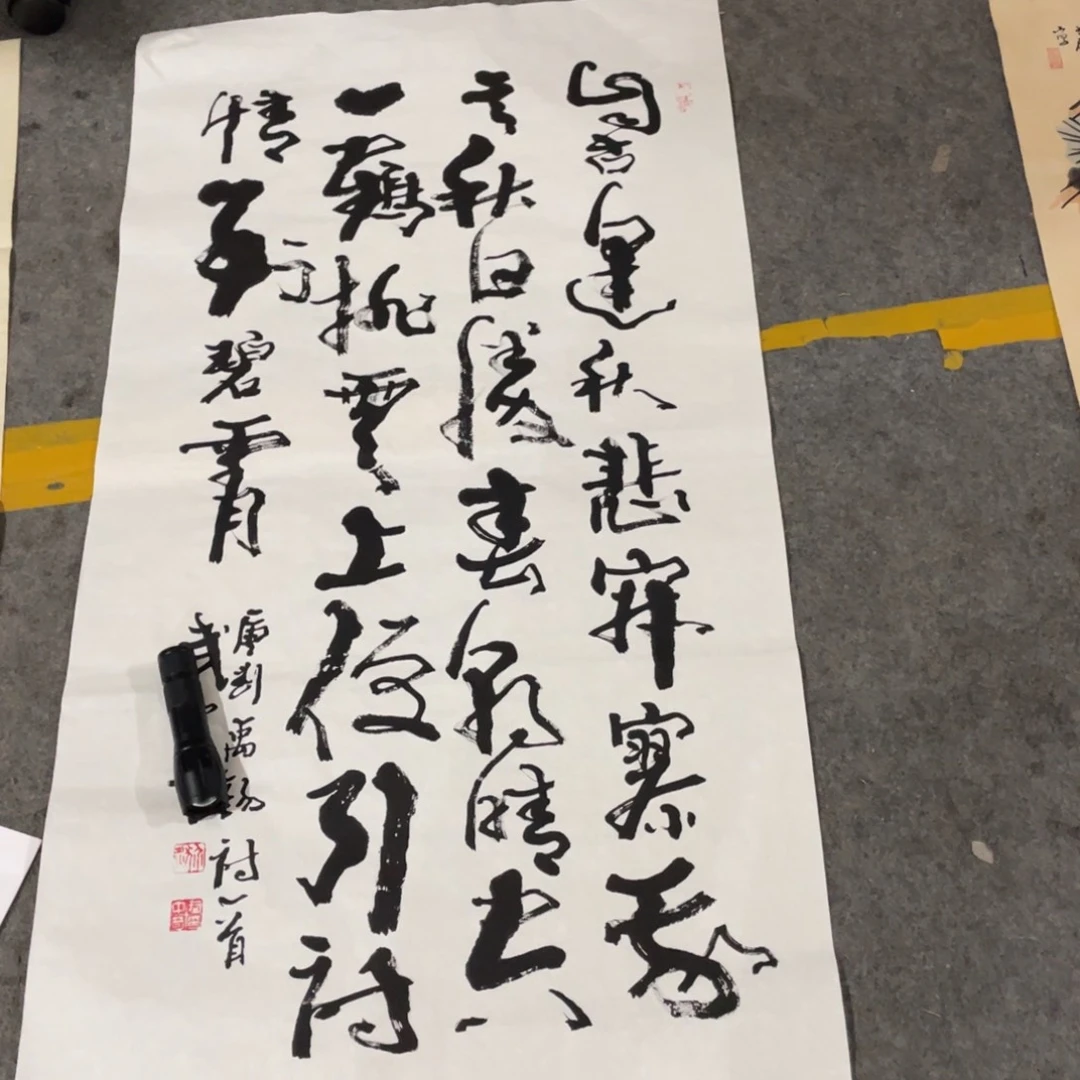 自古逢秋悲寂寥我
言秋日勝春朝晴空
一鶴排雲上便引詩
情到碧霄
唐劉禹錫詩一首